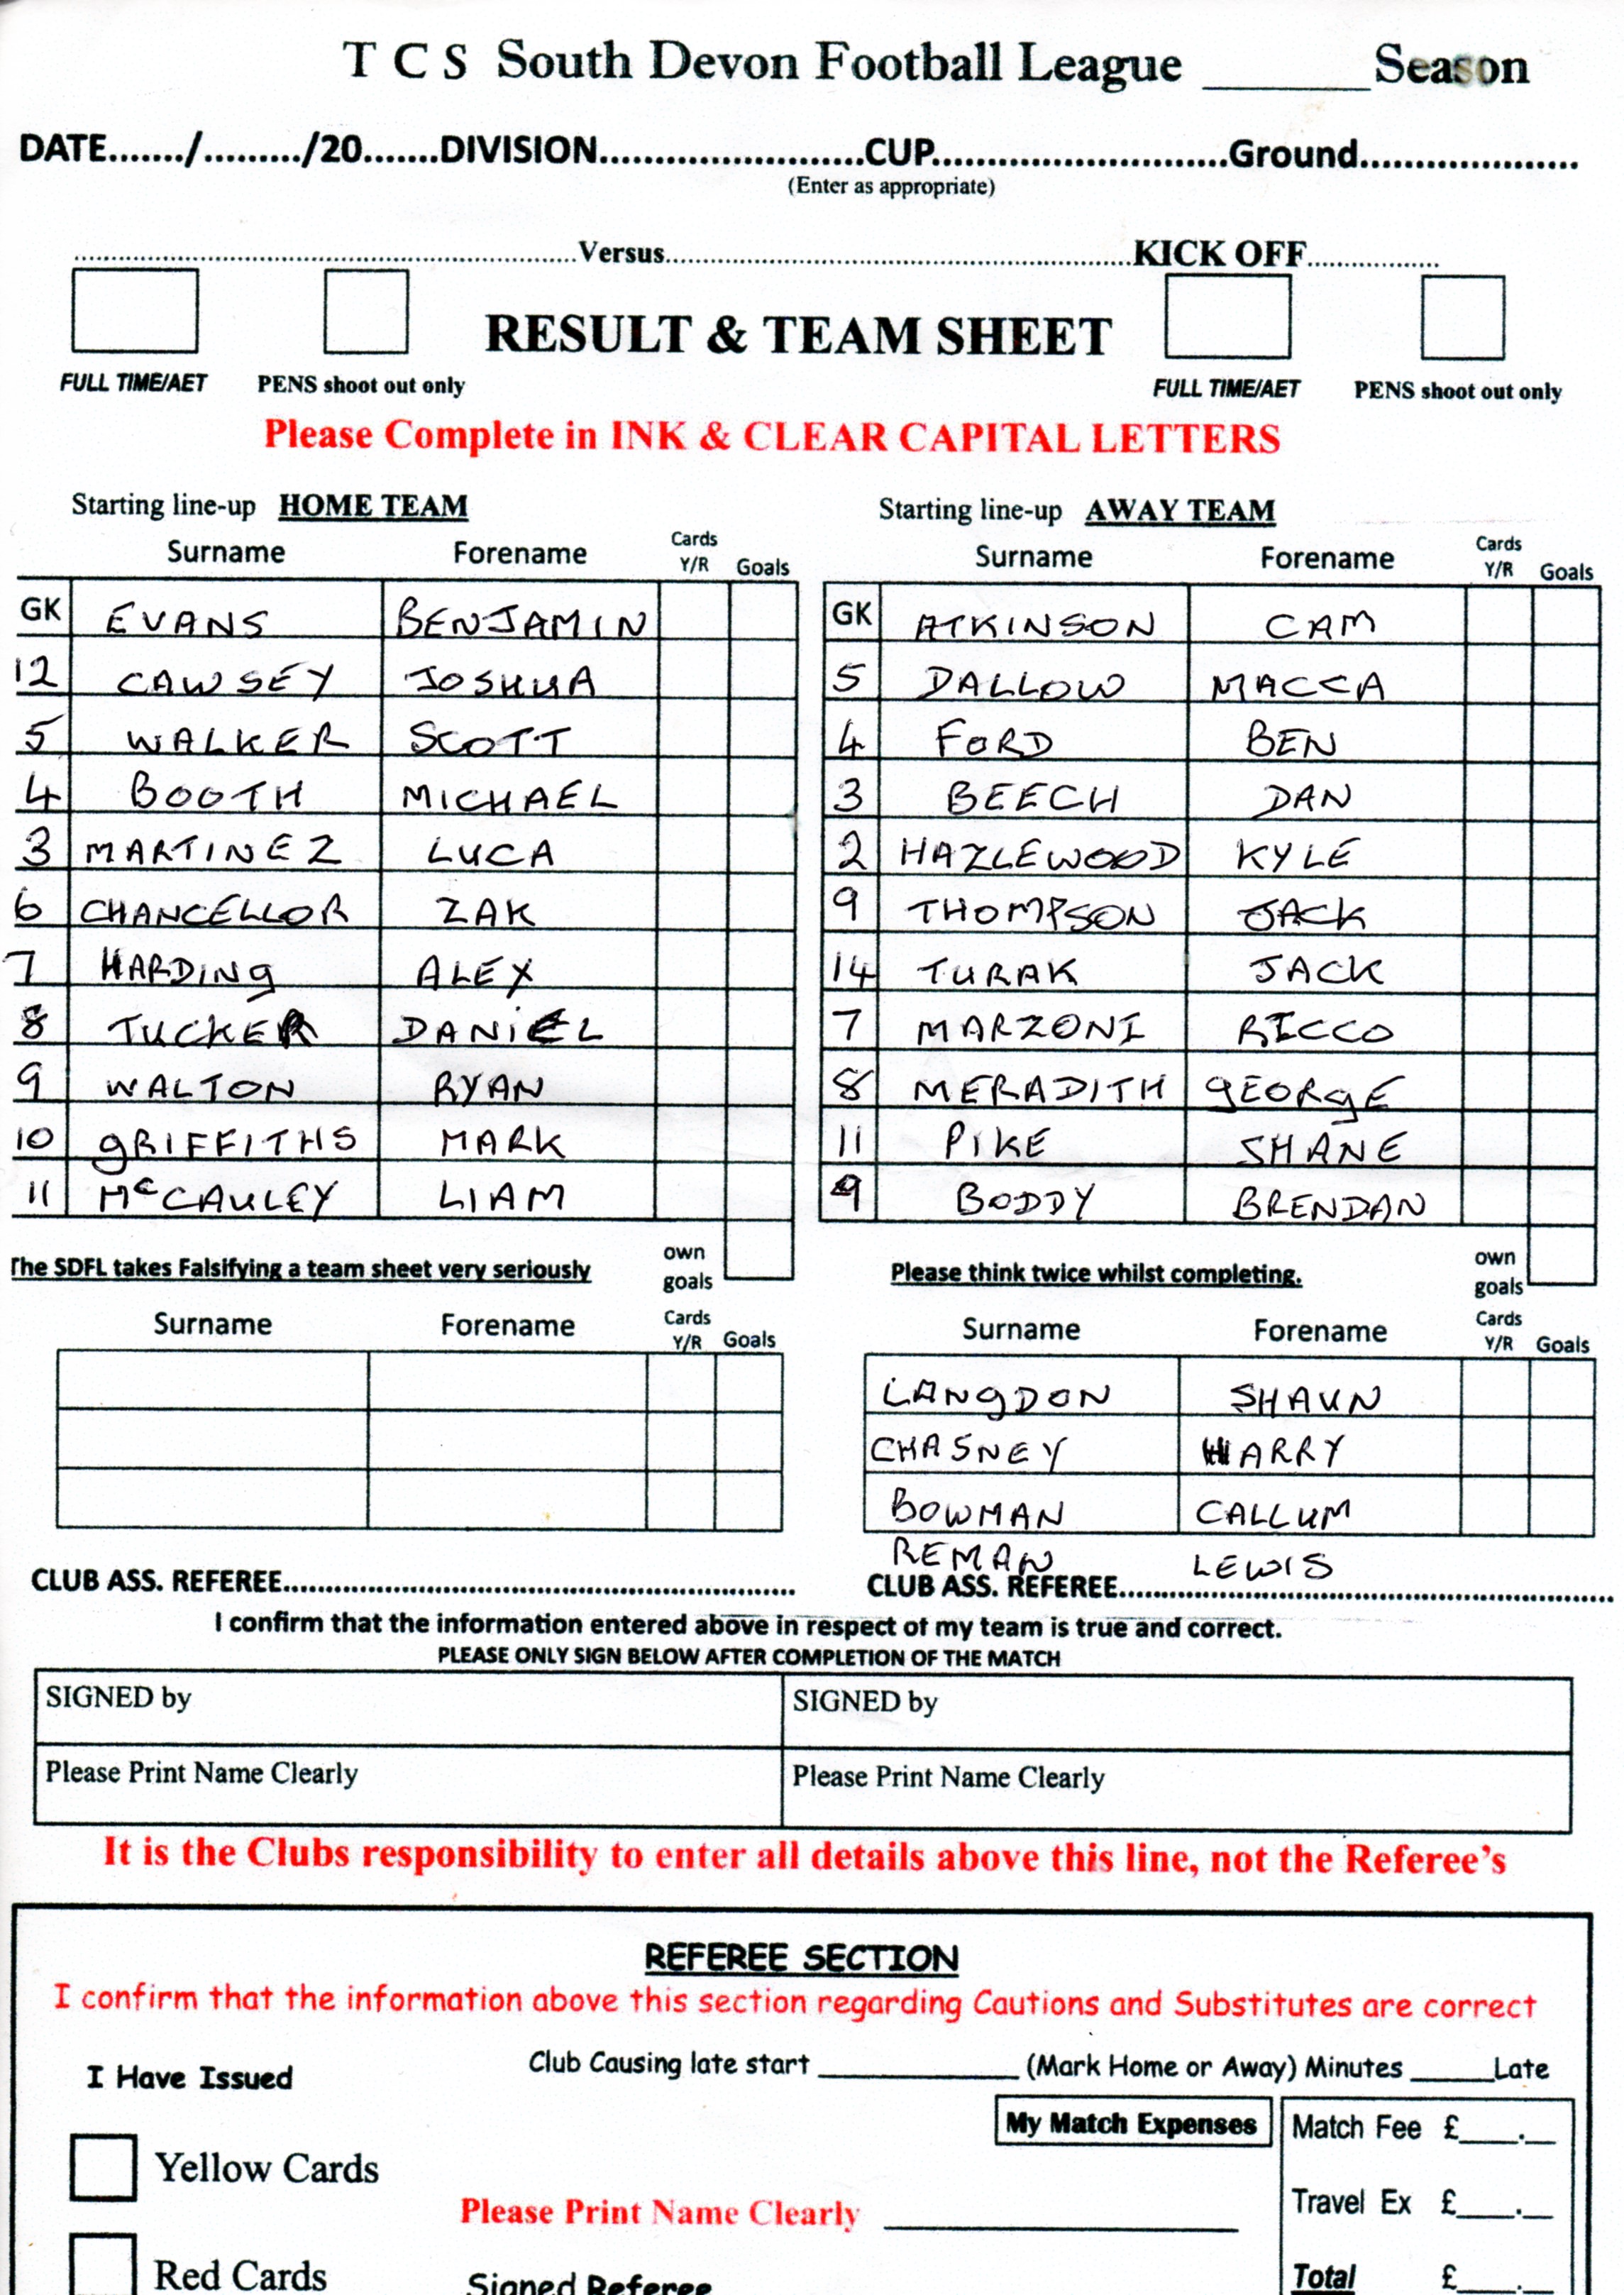 T C S South Devon Football League ______ Season
DATE......./........./20.......DIVISION........................CUP...........................Ground....................
(Enter as appropriate)
..........Versus..........KICK OFF..........
RESULT & TEAM SHEET
FULL TIME/AET PENS shoot out only FULL TIME/AET PENS shoot out only
Please Complete in INK & CLEAR CAPITAL LETTERS
Starting line-up HOME TEAM Starting line-up AWAY TEAM
Surname Forename Cards Y/R Goals Surname Forename Cards Y/R Goals
GK EVANS BENJAMIN GK ATKINSON CAM
12 CAWSEY JOSHUA 5 DALLOW MACCA
5 WALKER SCOTT 4 FORD BEN
4 BOOTH MICHAEL 3 BEECH DAN
3 MARTINEZ LUCA 2 HAZLEWOOD KYLE
6 CHANCELLOR ZAK 9 THOMPSON JACK
7 HARDINg ALEX 14 TURAK JACK
8 TUCKER DANiEL 7 MARZONI RICCO
9 WALTON RYAN 8 MERADITH gEORgE
10 gRIFFITHS MARK 11 PIKE SHANE
11 McCAULEY LIAM 9 BODDY BRENDAN
The SDFL takes Falsifying a team sheet very seriously own goals Please think twice whilst completing. own goals
Surname Forename Cards Y/R Goals Surname Forename Cards Y/R Goals
LANgDON SHAUN
CHASNEY HARRY
BOWMAN CALLUM
REMAN LEWIS
CLUB ASS. REFEREE.......... CLUB ASS. REFEREE..........
I confirm that the information entered above in respect of my team is true and correct.
PLEASE ONLY SIGN BELOW AFTER COMPLETION OF THE MATCH
SIGNED by SIGNED by
Please Print Name Clearly Please Print Name Clearly
It is the Clubs responsibility to enter all details above this line, not the Referee's
REFEREE SECTION
I confirm that the information above this section regarding Cautions and Substitutes are correct
I Have Issued Club Causing late start ______ (Mark Home or Away) Minutes _____Late
My Match Expenses Match Fee £____.__
Yellow Cards
Please Print Name Clearly ______ Travel Ex £____.__
Red Cards Signed Referee Total £____.__